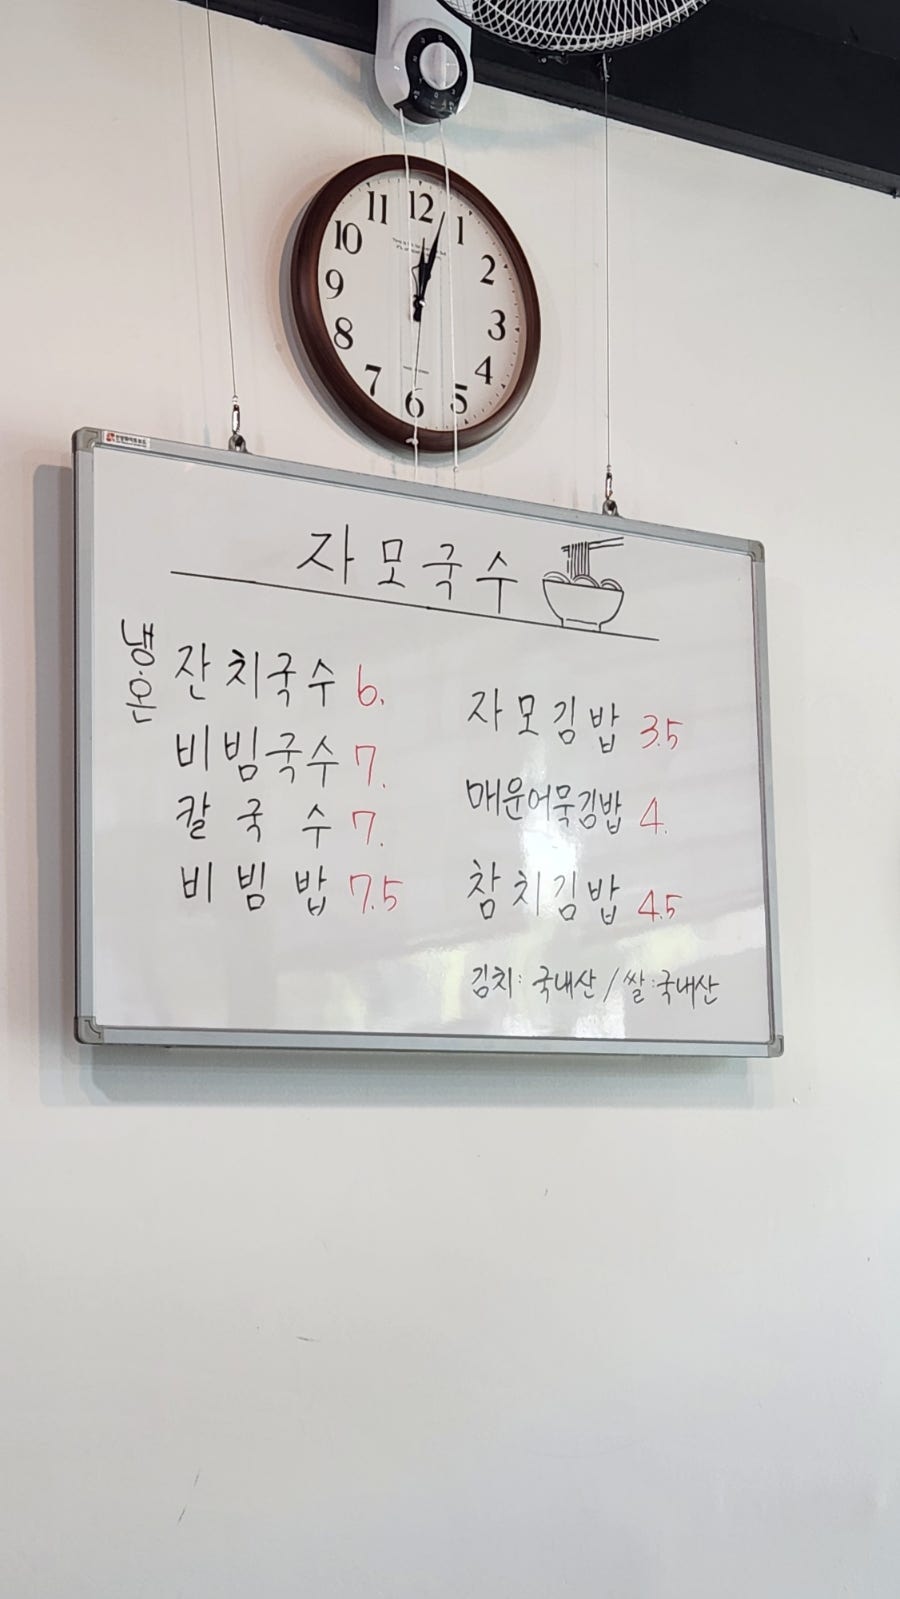 12
11
1
10
2
9
3
8
4
7
5
6
자모국수
냉·온
잔치국수 6.
비빔국수 7.
칼국수 7.
비빔밥 7.5
자모김밥 3.5
매운어묵김밥 4.
참치김밥 4.5
김치: 국내산 / 쌀: 국내산